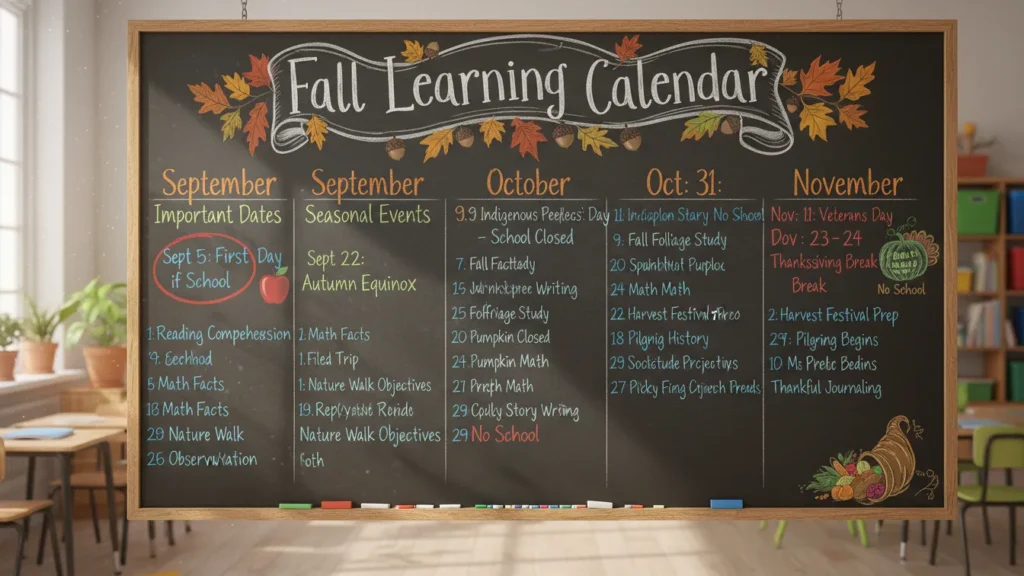 Fall Learning Calendar
September
Important Dates
Sept 5: First Day
if School
1. Reading Comprehension
9. Eechhod
5 Math Facts
18 Math Facts
29 Nature Walk
26 Observation
September
Seasonal Events
Sept 22:
Autumn Equinox
2. Math Facts
1. Filed Trip
1: Nature Walk Objectives
19.
Nature Walk Objectives
October
9.9 Indigenous Day
– School Closed
7. Fall Facttady
15 Writing
25 Study
20 Pumpkin Closed
24 Pumpkin Math
21 Math
29 Story Writing
29 No School
Oct: 31:
11: No School
9. Fall Foliage Study
20
24 Math Math
22 Harvest Festival
18 Pilgnig History
29
27 Picky Fing
November
Nov: 11: Veterans Day
Dov : 23 - 24
Thankssiving Break
Break
No School
2: Harvest Festival Prep
29: Pilgring Begins
10 Ms Pretc Bedins
Thankful Journaling